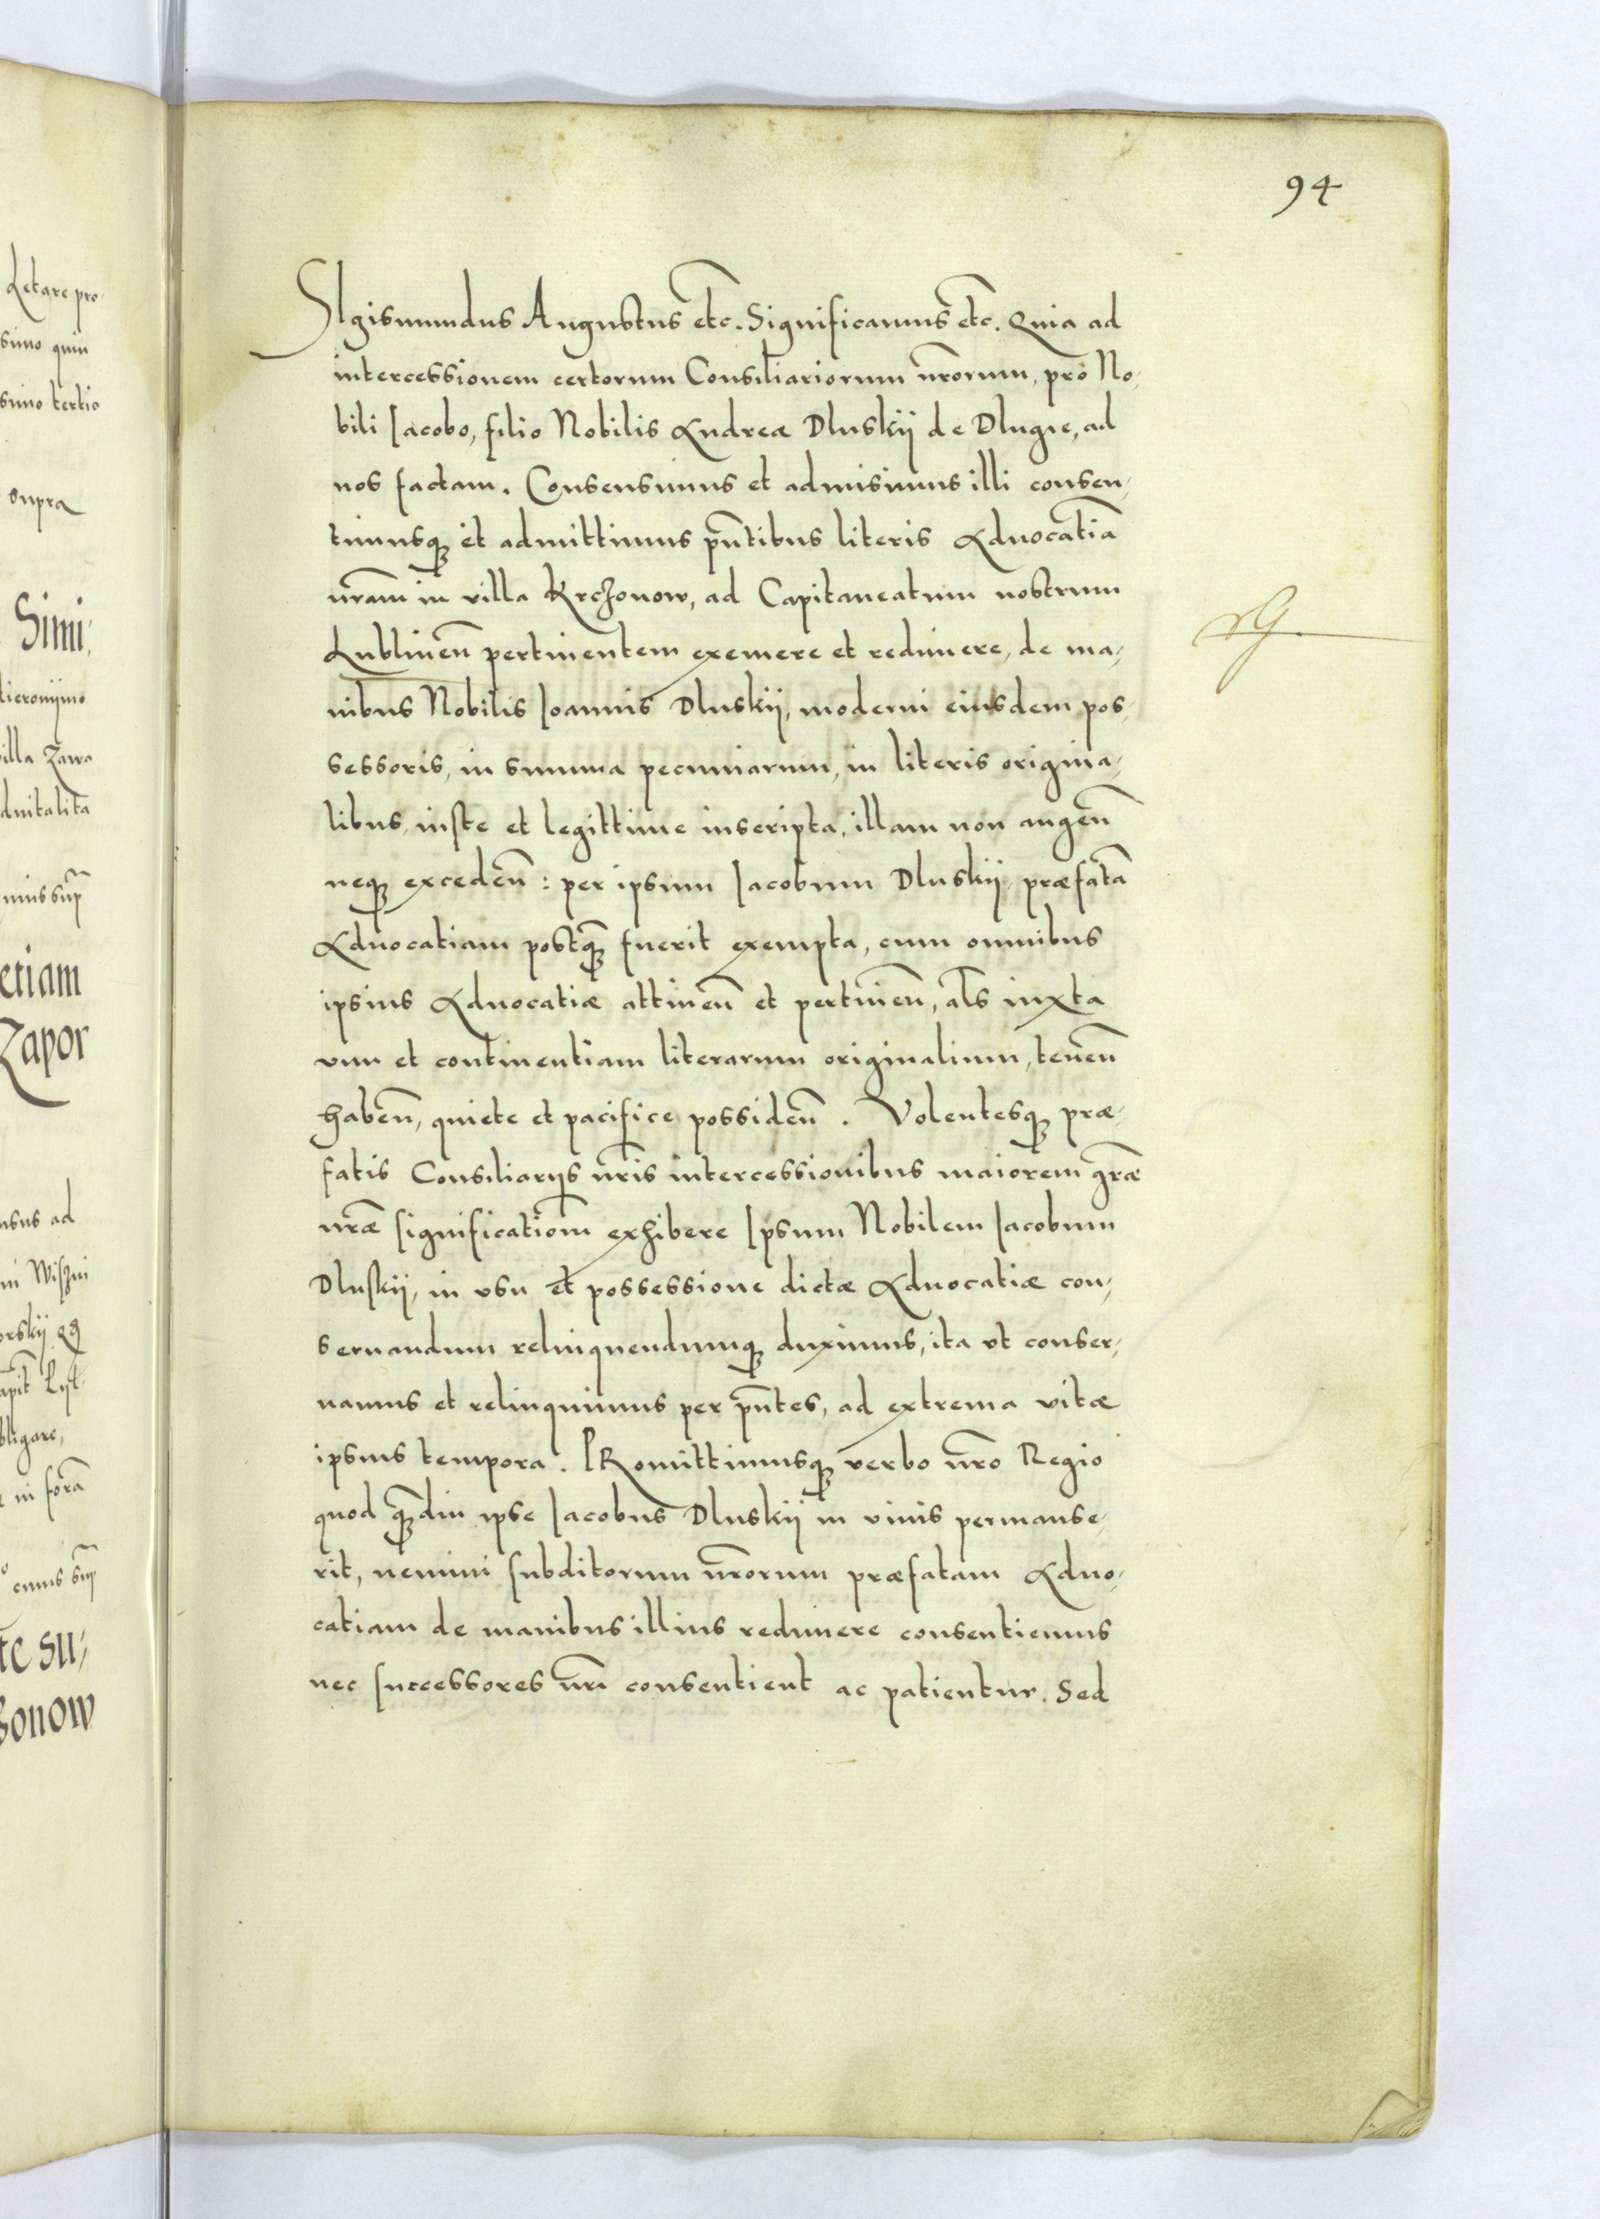 Letare pro
simo quin
simo tertio
supra
Simi,
Hieronijmo
villa Zawa
etiam
Zapor
ad
in forã
te su,
sonow
94
SIgismundus Augustus etc. Significamus etc. Quia ad
intercessionem certorum Consiliariorum nr̃orum, pro No,
bili Iacobo, filio Nobilis Andreæ Dluskij de Dlugie, ad
nos factam. Consensimus et admisimus illi consen,
timusq; et admittimus pñtibus literis Aduocatiã
nrãm in villa Krczonow, ad Capitaneatum nostrum
Lublineñ pertinentem eximere et redimere, de ma,
nibus Nobilis Ioannis Dluskij, moderni eiusdem pos,
sessoris, in summa pecuniarum, in literis origina,
libus, iuste et legittime inscripta, illam non augeñ
neq; excedeñ: per ipsum Iacobum Dluskij, præfatã
Aduocatiam postq̃; fuerit exempta, cum omnibus
ipsius Aduocatiæ attineñ et pertineñ, als̃ iuxta
vim et continentiam literarum originalium, teneñ
habeñ, quiete et pacifice possideñ. Volentesq; præ,
fatis Consiliarijs nr̃is intercessionibus maiorem gr̃æ
nr̃æ significatiom̃ exhibere Ipsum Nobilem Iacobum
Dluskij, in vsu et possessione dictæ Aduocatiæ con,
seruandum relinquendumq; duximus, ita vt conser,
uamus et relinquimus per pñtes, ad extrema vitæ
ipsius tempora. PRomittimusq; verbo nr̃o Regio
quod q̃;diu ipse Iacobus Dluskij in viuis permanse,
rit, nemini subditorum nr̃orum præfatam Aduo,
catiam de manibus illius redimere consentiemus
nec successores nr̃i consentient ac patientur. Sed